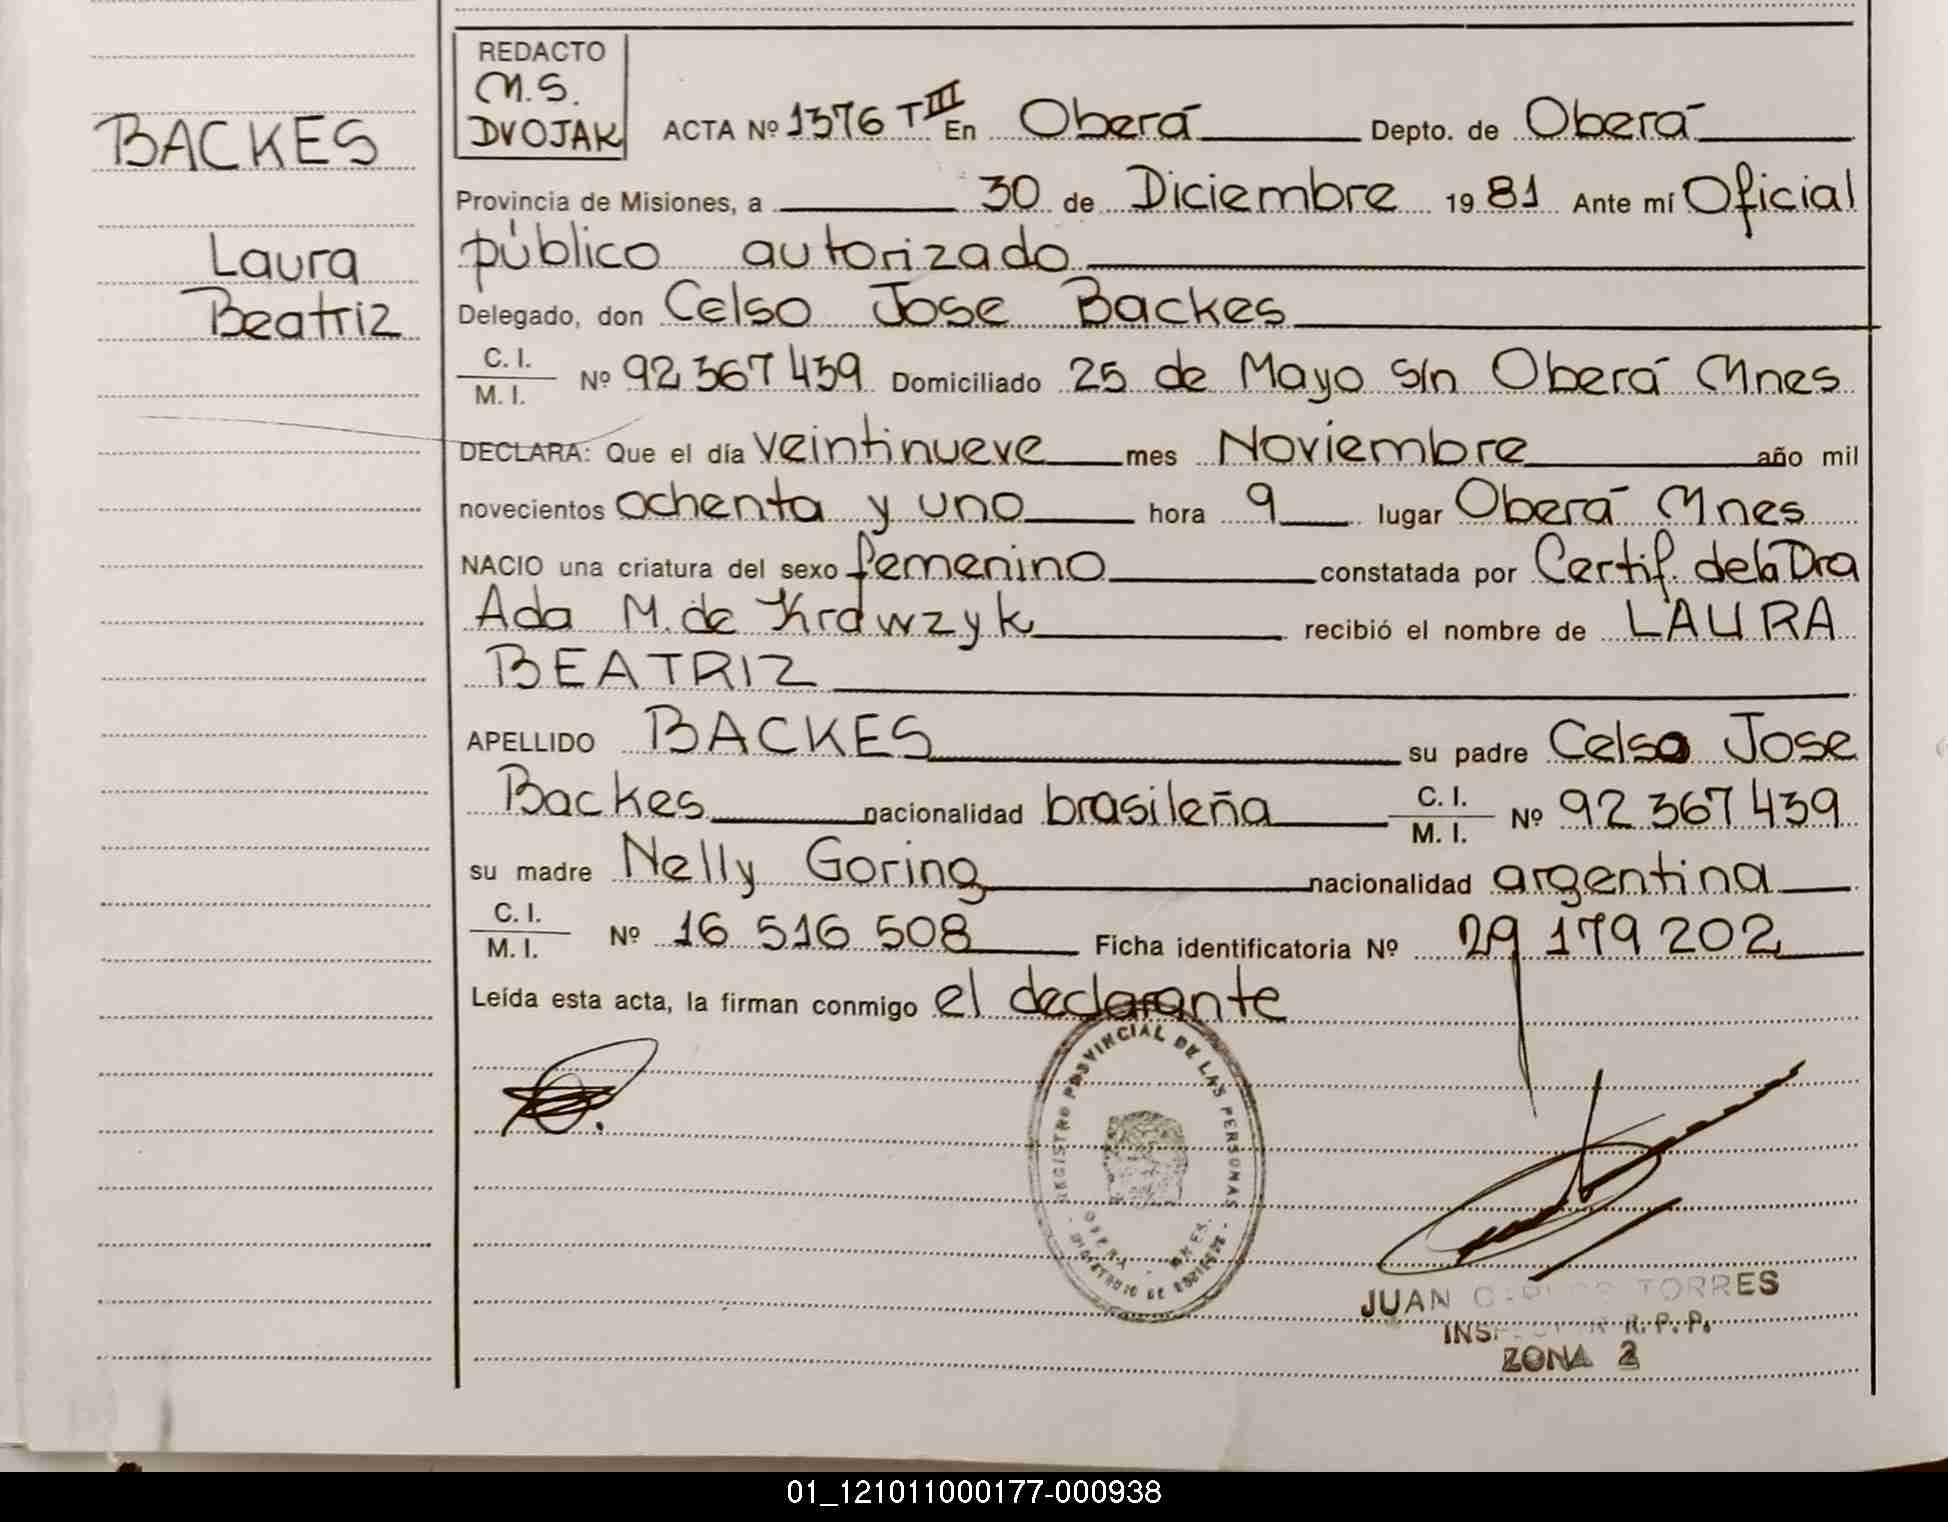 REDACTO
M.S.
DVOJAK
ACTA Nº 1376 T III En Oberá Depto. de Oberá
BACKES
Provincia de Misiones, a 30 de Diciembre 19 81 Ante mí Oficial
público autorizado
Laura
Beatriz
Delegado, don Celso Jose Backes
C. I.
M. I. Nº 92 367 439 Domiciliado 25 de Mayo s/n Oberá Mnes
DECLARA: Que el día veintinueve mes Noviembre año mil
novecientos ochenta y uno hora 9 lugar Oberá Mnes
NACIO una criatura del sexo femenino constatada por Certif. de la Dra
Ada M. de Krawzyk recibió el nombre de LAURA
BEATRIZ
APELLIDO BACKES su padre Celso Jose
Backes nacionalidad brasileña C. I.
M. I. Nº 92 367 439
su madre Nelly Goring nacionalidad argentina
C. I.
M. I. Nº 16 516 508 Ficha identificatoria Nº 29 179 202
Leída esta acta, la firman conmigo el declarante
REGISTRO PROVINCIAL DE LAS PERSONAS
OBERA - MNES.
JUAN CARLOS TORRES
INSPECTOR R. P. P.
ZONA 2
01_121011000177-000938